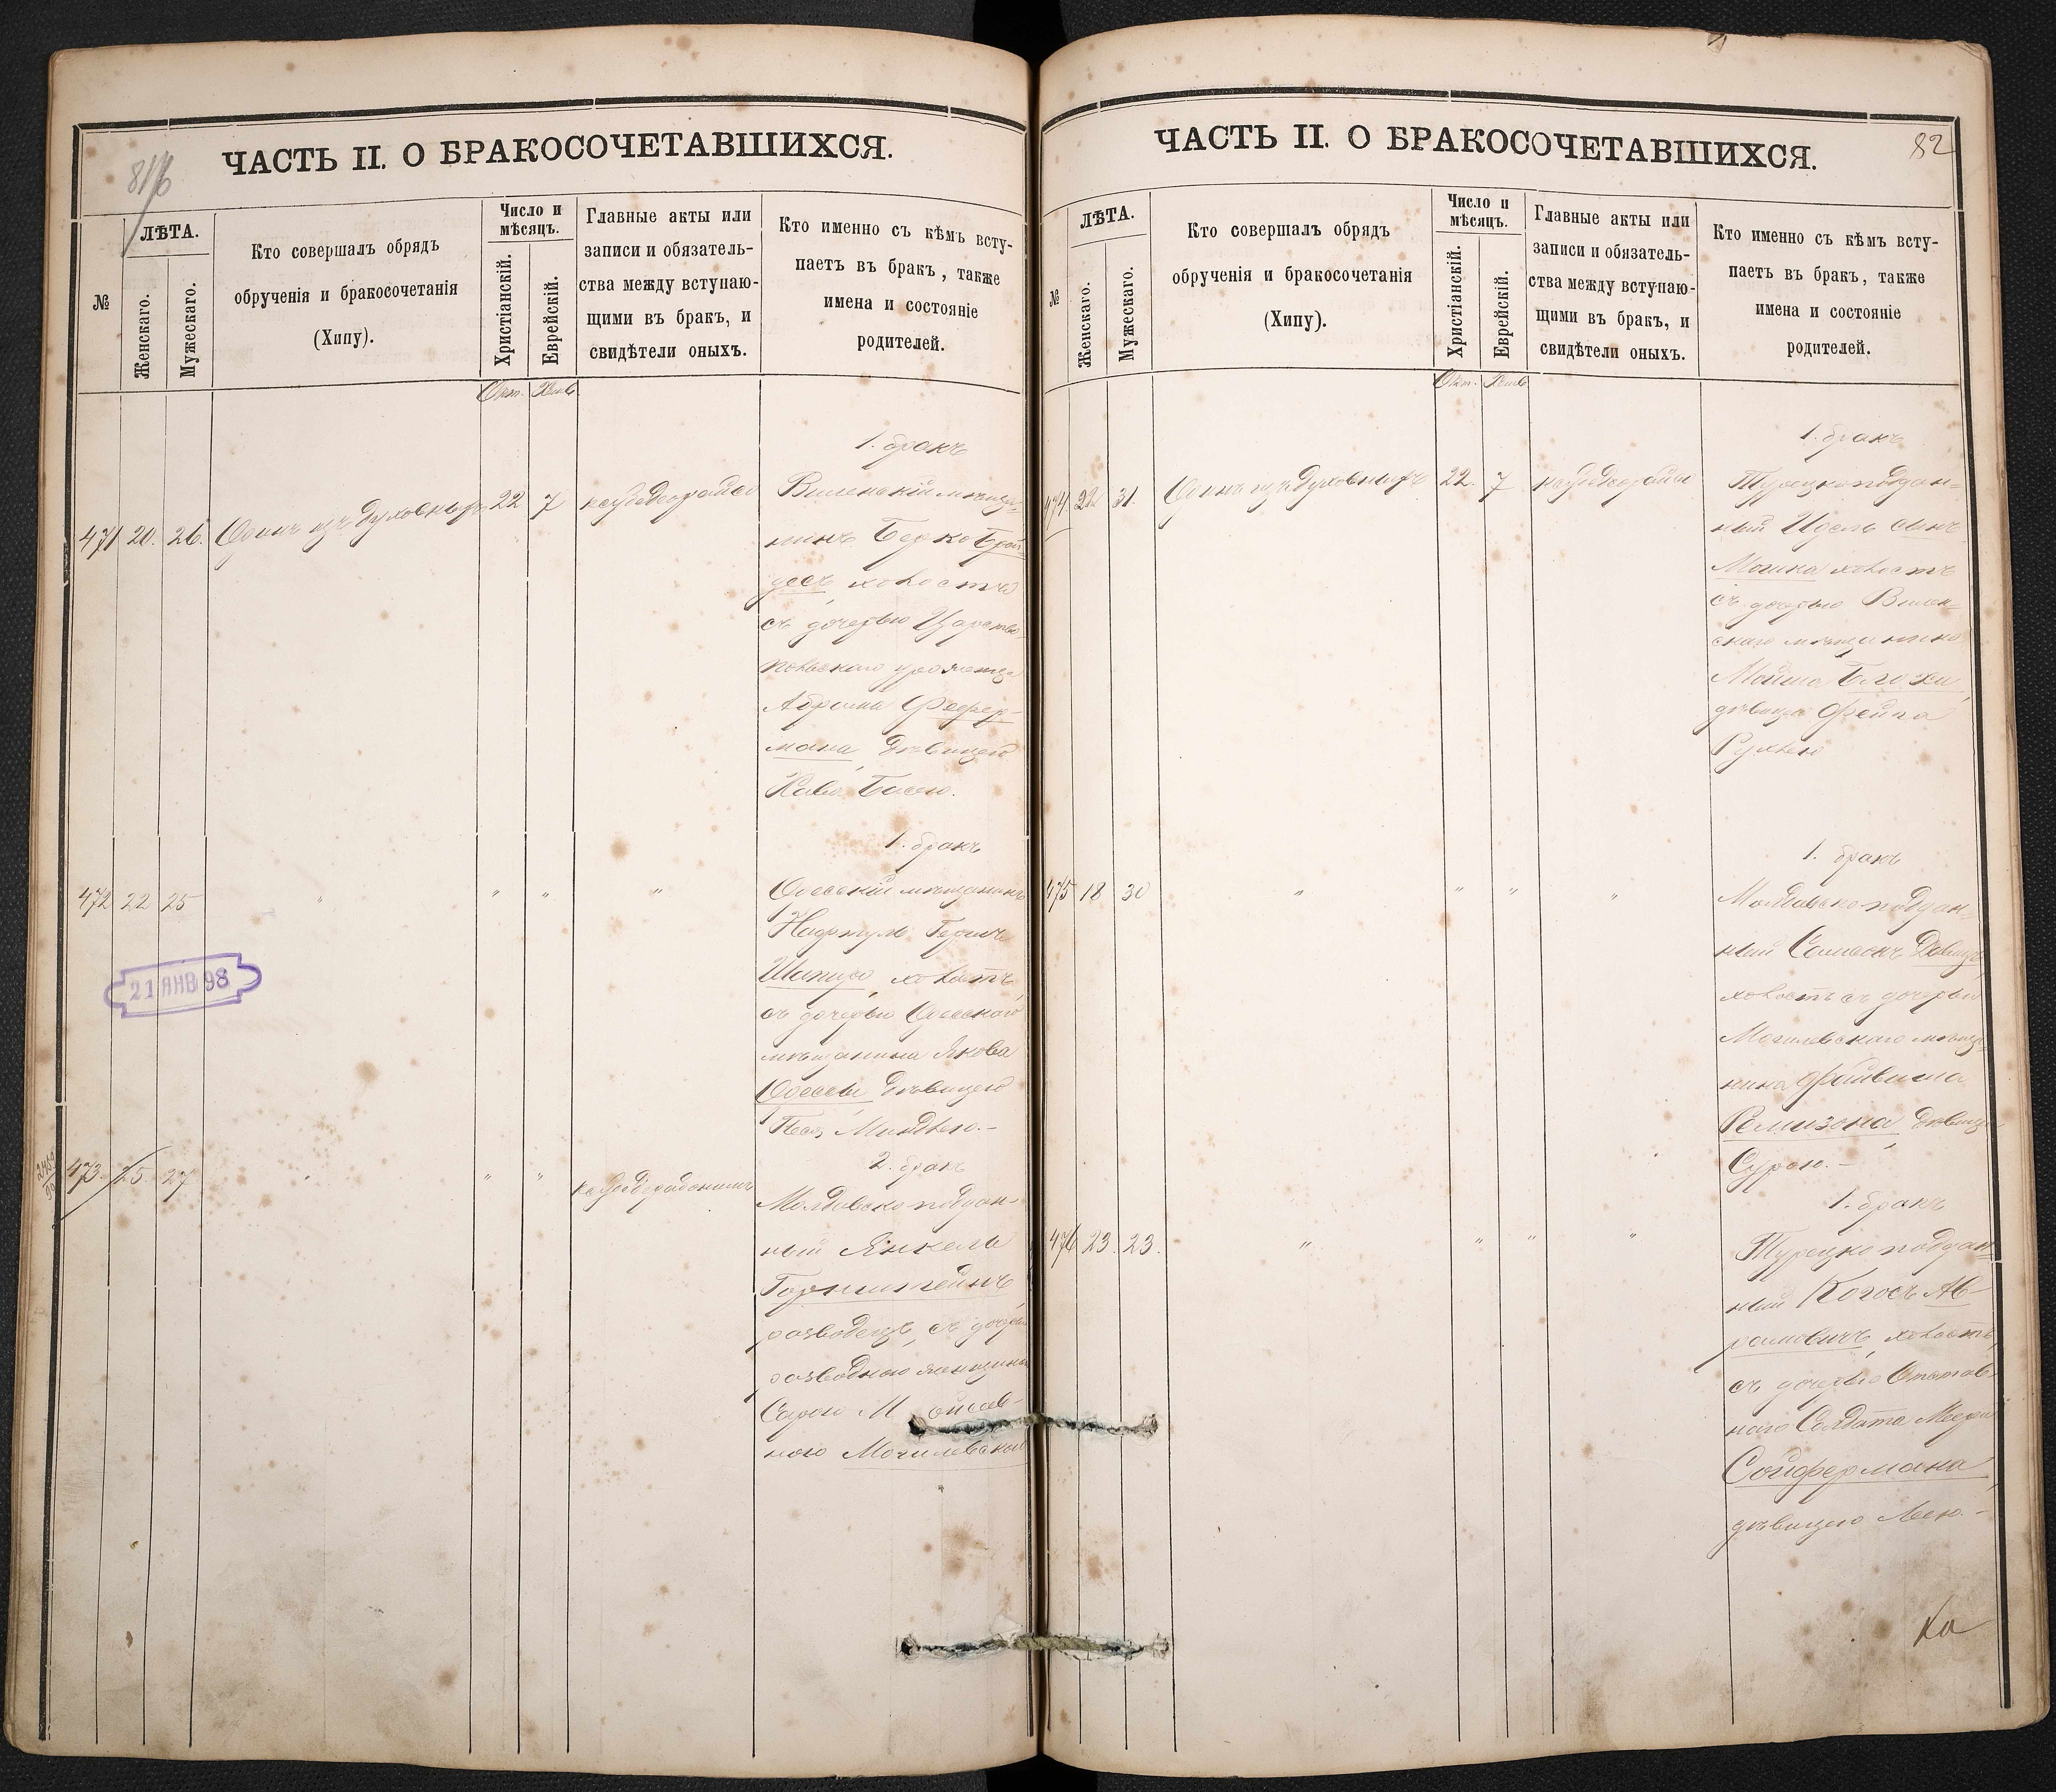 ЧАСТЬ II. О БРАКОСОЧЕТАВШИХСЯ.
№
ЛѢТА.
Женскаго.
Мужескаго.
Кто совершалъ обрядъ
обрученія и бракосочетанія
(Хипу).
Число и
мѣсяцъ.
Христіанскій.
Еврейскій.
Главные акты или
записи и обязатель-
ства между вступаю-
щими въ бракъ, и
свидѣтели оныхъ.
Кто именно съ кѣмъ всту-
паетъ въ бракъ, также
имена и состояніе
родителей.
Окт.
471 20. 26. Одинъ изъ духовныхъ 22 7
1. бракъ
Виленскій мѣща-
нинъ Берко
холостъ
съ дочерью Царство
польскаго
Абрама Фефер-
мана, дѣвицею
Хаве Басею.
472 22 25 " " " "
1. бракъ
Одесскій мѣщанинъ
Нафтуль Герш
Шапиро, холостъ,
съ дочерью Одесскаго
мѣщанина Якова
Одессы дѣвицею
Песя Миндлею.-
21 ЯНВ 98
473 25. 27. " " "
2. бракъ
Молдавскоподдан-
ный Янкель
Горнштейнъ
разводецъ, съ
разводною женщиною
Сарою М ойсеев-
ною Могилевскою
ЧАСТЬ II. О БРАКОСОЧЕТАВШИХСЯ.
82
№
ЛѢТА.
Женскаго.
Мужескаго.
Кто совершалъ обрядъ
обрученія и бракосочетанія
(Хипу).
Число и
мѣсяцъ.
Христіанскій.
Еврейскій.
Главные акты или
записи и обязатель-
ства между вступаю-
щими въ бракъ, и
свидѣтели оныхъ.
Кто именно съ кѣмъ всту-
паетъ въ бракъ, также
имена и состояніе
родителей.
Окт.
474. 22 31. Одинъ изъ духовныхъ 22. 7
1. бракъ
Турецкоподдан-
ный
холостъ
съ дочерью Вилен-
скаго мѣщанина
дѣвицею Фейга
Рухлею
475 18 30 " " " "
1. бракъ
Молдавскоподдан-
ный Самсонъ
холостъ съ дочерью
Могилевскаго мѣща-
нина Файвиша
Ремизона, дѣвицею
Сурою.-
476 23. 23. " " " "
1. бракъ
Турецкоподдан-
ный Когосъ Ав-
рамовичъ, холостъ,
съ дочерью Отстав-
наго Солдата Меера
Сойфермана,
дѣвицею Леею.-
Ка